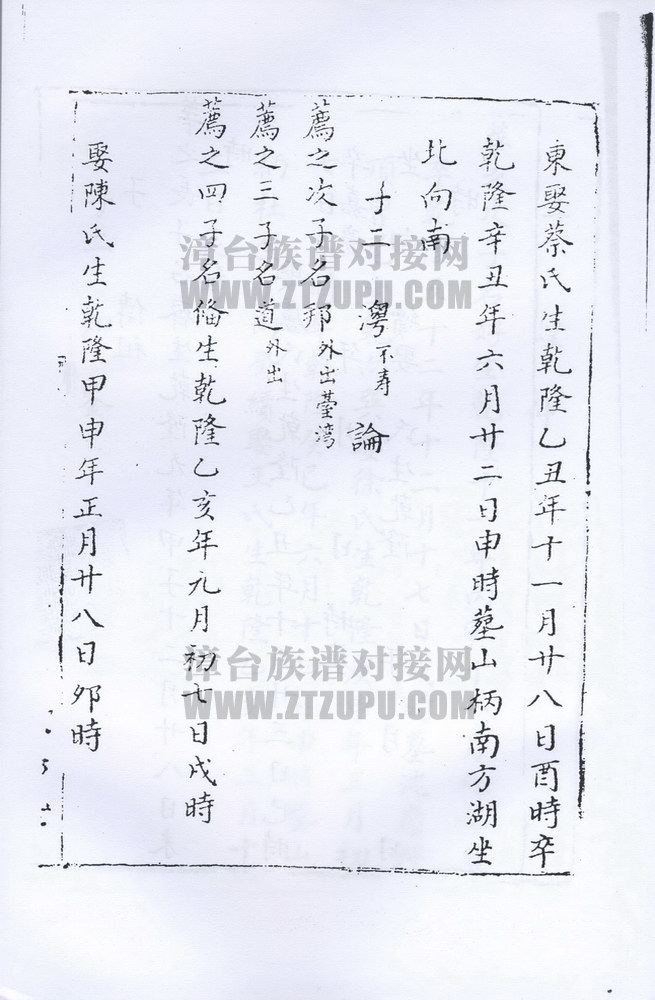 東娶蔡氏生乾隆乙丑年十一月廿八日酉時卒
乾隆辛丑年六月廿二日申時墓山柄南方湖坐
北向南
子二 灣不寿 論
薦之次子名邦外出臺湾
薦之三子名道外出
薦之四子名俻生乾隆乙亥年元月初七日戌時
娶陳氏生乾隆甲申年正月廿八日夘時
漳台族谱对接网
WWW.ZTZUPU.COM
漳台族谱对接网
WWW.ZTZUPU.COM